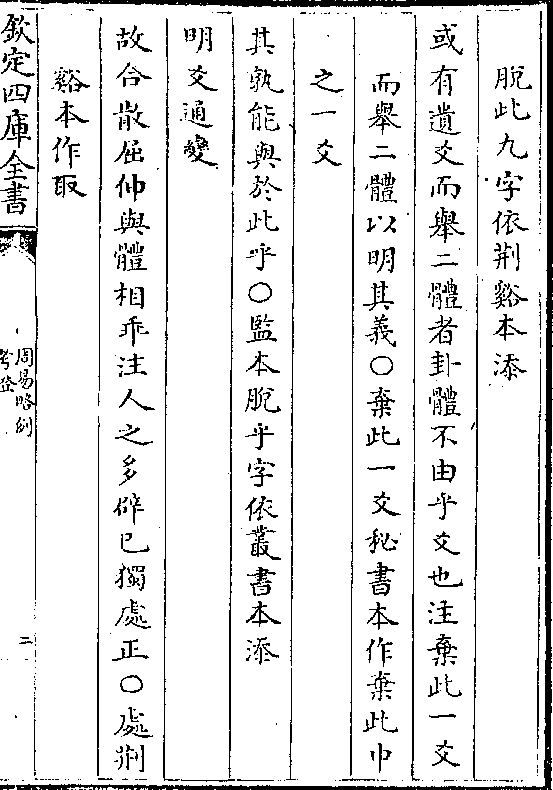 脫此九字依荆谿本添
或有遺爻而舉二體者卦體不由乎爻也注棄此一爻
而舉二體以明其義○棄此一爻秘書本作棄此中
之一爻
其孰能與於此乎○監本脫乎字依叢書本添
明爻通變
故合散屈伸與體相乖注人之多僻已獨處正○處荆
谿本作取
欽定四庫全書
周易略例
考證
二